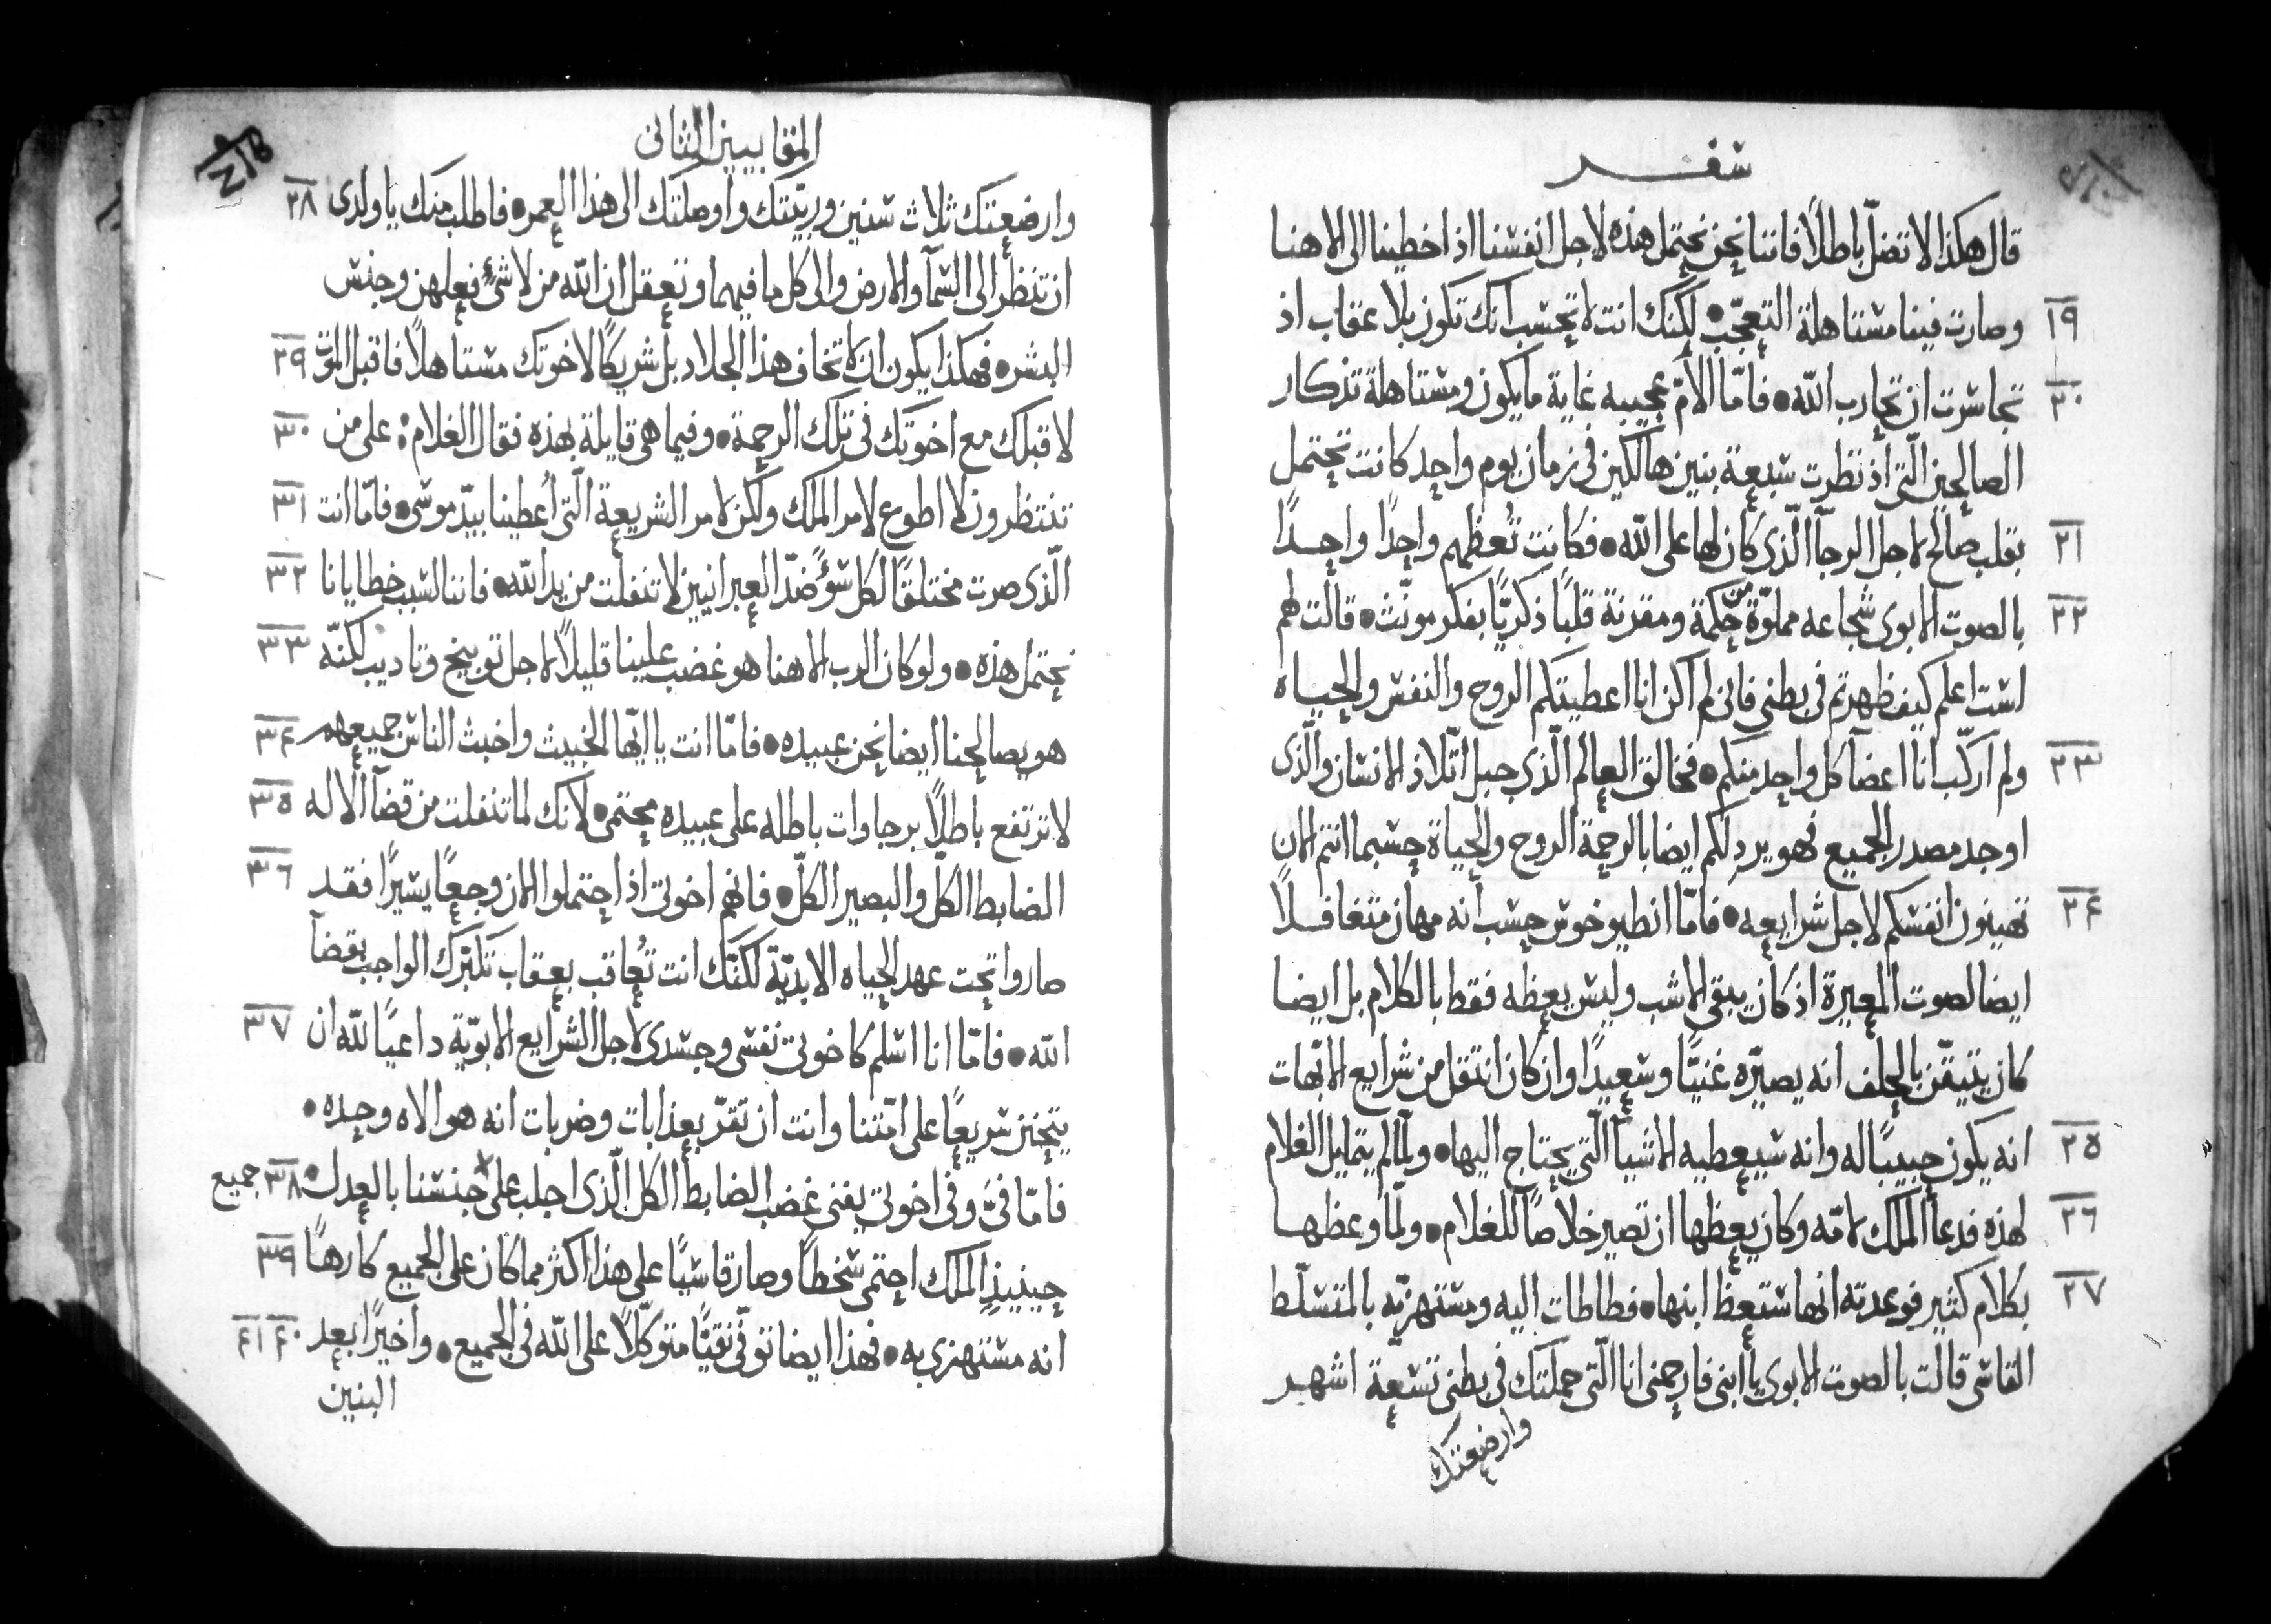 سفر
قال هكذا لا تضل باطلاً فاننا نحن نحتمل هذه لاجل انفسنا اذ اخطينا الى الاهنا
١٩ وصارت فينا مستاهلة التعجّب • لكنك انت لا تحسب انك تكون بلا عقاب اذ
٢٠ تجاسرت ان تحارب الله • فامّا الأمّ عجيبه غاية ما يكون ومستاهلة تذكار
الصالحين الّتي اذ نظرت سبعة بنين هالكين في زمان يوم واحد كانت تحتمل
٢١ بقلب صالح لاجل الرجآ الّذي كان لها على الله • فكانت تُعظهم واحدًا واحدًا
٢٢ بالصوت الابوى شجاعه مملوّة من حكمة ومقرنة قلبًا ذكريًّا بفكر مونّث • قالت لهم
لست اعلم كيف ظهرتم في بطني فاني لم اكن انا اعطيتكم الروح والنفس والحياه
٢٣ ولم اركّب انا اعضآ كل واحد منكم • فخالق العالم الّذي جبل اتّلاذ الانسان والّذي
اوجد مصدر الجميع فهو يرد لكم ايضا بالرحمة الروح والحياة حسبما انتم الان
٢٤ تهينون انفسكم لاجل شرايعه • فامّا انطيوخوس حسب انه مهان متغافلاً
ايضا لصوت المعيرة اذ كان يبقى الاشب وليس يعظه فقط بالكلام بل ايضا
كان يتيقّن بالحلف انه يصيّره غنيًّا وسعيدًا وان كان انتقل من شرايع الابّهات
٢٥ انه يكون حبيبًا له وانه سيعطيه الاشيآ الّتي يحتاج اليها • ولمّا لم يتمايل الغلام
٢٦ لهذه فدعا الملك لامّه وكان يعظها ان تصير خلاصًا للغلام • ولمّا وعظها
٢٧ بكلام كثير فوعدته انها ستعظ ابنها • فطاطات اليه ومستهزيّه بالمتسلّط
القاسي قالت بالصوت الابوى يا ابني فارحمني انا الّتي حملتك في بطني تسعة اشهر
وارضعتك
المقابيين الثاني
وارضعتك ثلاث سنين وربيّتك واوصلتك الى هذا العمر • فاطلب منك يا ولدى ٢٨
ان تنظر الى السمآ والارض والى كل ما فيهما وتعقل ان الله من لا شئ فعلهن وجنس
البشر • فهكذا يكون ان لا تخاف هذا الجلاد بل شريكًا لاخوتك مستاهلاً فاقبل الموت ٢٩
لاقبلك مع اخوتك في تلك الرحمة • وفيما هي قايلة بهذه فقال الغلام • على من ٣٠
تنتظرون لا اطوع لامر الملك ولكن لامر الشريعة الّتي اُعطينا بيّد موسى • فامّا انت ٣١
الّذي صرت مختلقًا لكل سؤ ضدّ العبرانيين لا تنفلت من يد الله • فاننا لسبب خطايانا ٣٢
نحتمل هذه • ولو كان الرب الاهنا هو غضب علينا قليلاً لاجل توبيخ وتاديب لكنّه ٣٣
هو يصالحنا ايضا نحن عبيده • فامّا انت يا ايّها الخبيث واخبث الناس جميعهم ٣٤
لا ترتفع باطلاً برجاوات باطله على عبيده محتمي • لانك لما تنفلت من قضآ الاله ٣٥
الضابط الكلّ والبصير الكلّ • فانهم اخوتي اذ احتملوا الان وجعًا يسيرًا فقد ٣٦
صاروا تحت عهد الحياه الابديّة لكنّك انت تُعاقب بعقاب تكبّرك الواجب بقضآ
الله • فامّا انا اسلم كاخوتي نفسي وجسدى لاجل الشرايع الابويّة داعيًا لله ان ٣٧
يتحنن سريعًا على امّتنا وانت ان تقرّ بعذابات وضربات انه هو الاه وحده •
فامّا فيَّ وفي اخوتي يفني غضب الضابط الكل الّذي اجلب على جنسنا بالعدل • ٣٨ جميع
حينيذٍ الملك احتمى سخطًا وصار قاسيًا على هذا اكثر مما كان على الجميع كارهًا ٣٩
انه مستهزى به • فهذا ايضا توفّي نقيًّا متوكّلاً على الله في الجميع • واخيرًا بعد ٤٠ ٤١
البنين